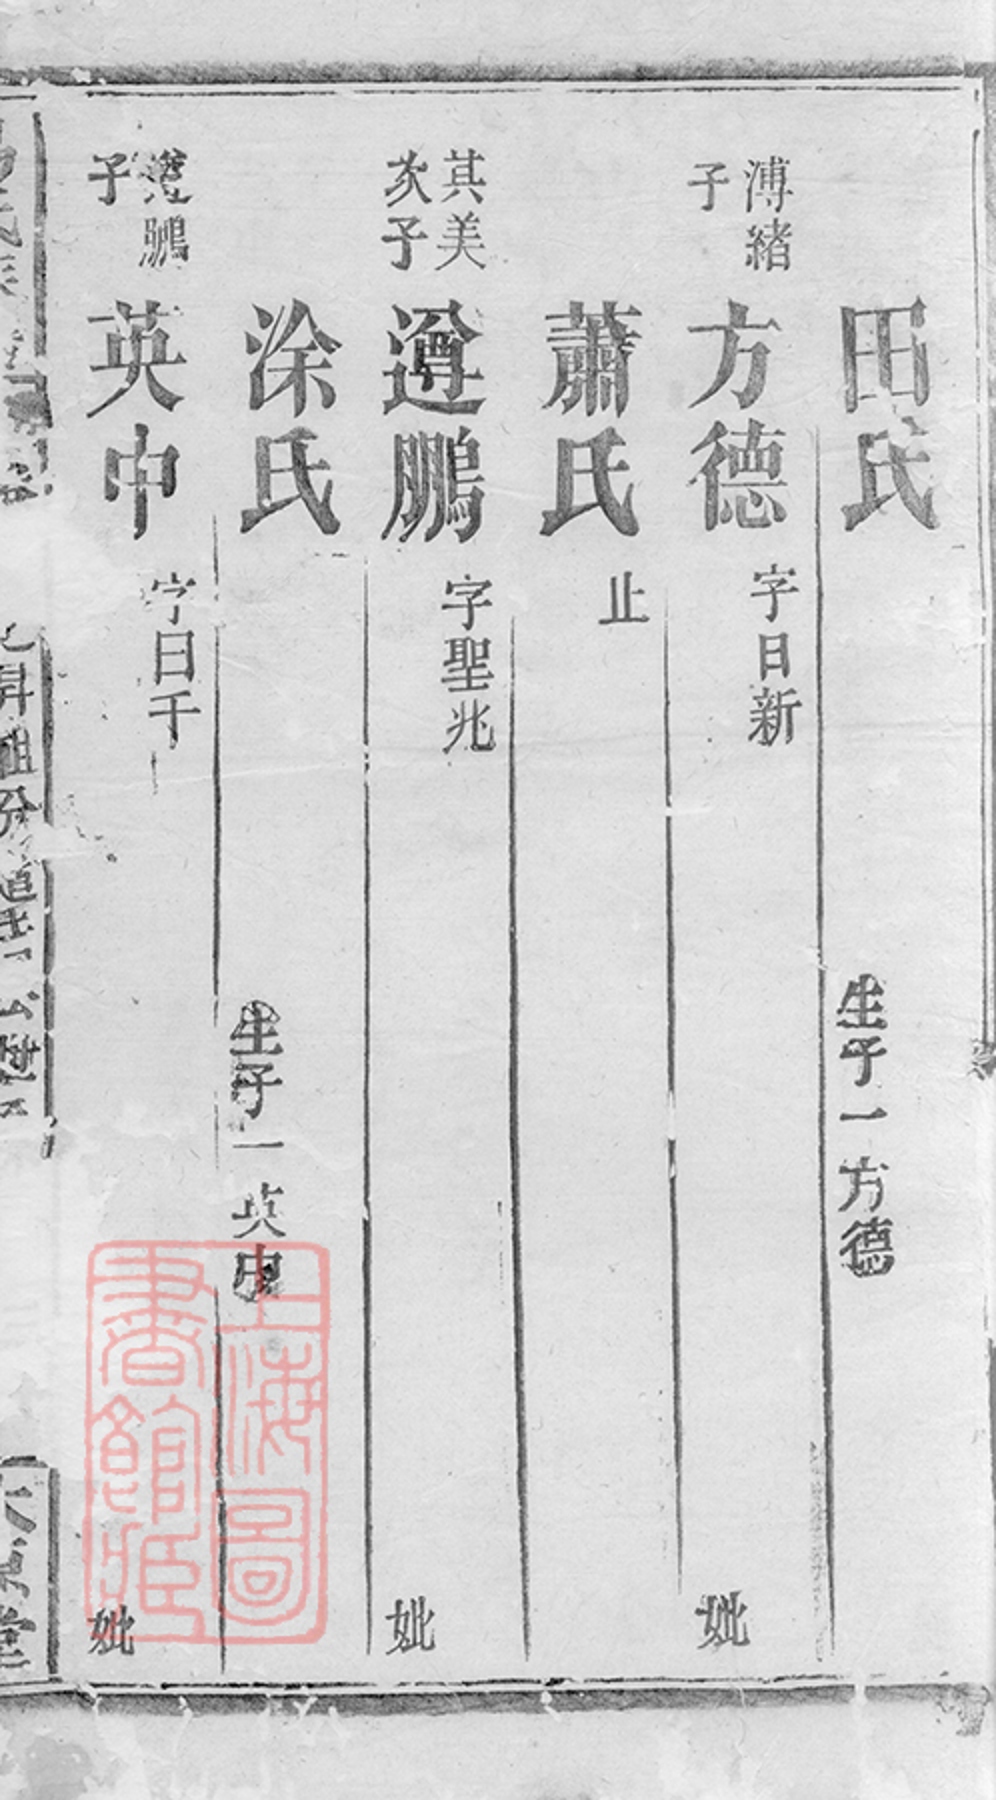 田氏 生子一方德
溥緒子 方德 字日新 妣
蕭氏 止
其美次子 遵鵬 字聖兆 妣
涂氏 生子一英中
遵鵬子 英中 字曰千 妣
上海圖書館藏